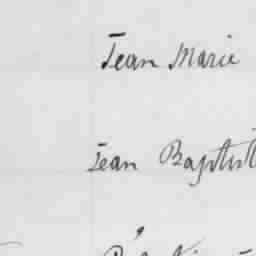 Jean Marie
Jean Baptist